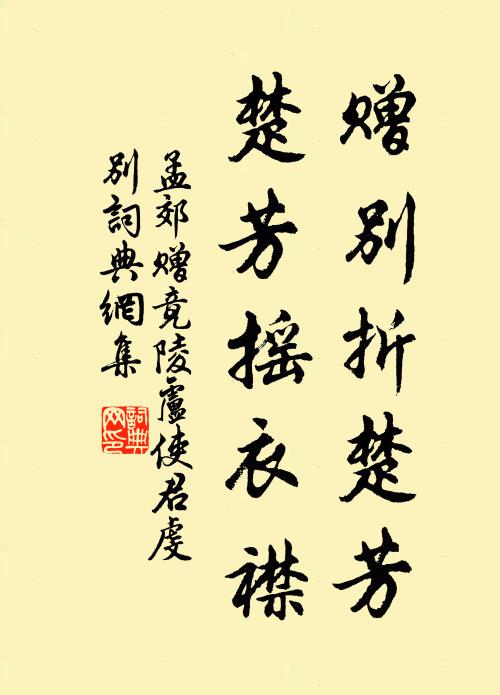 赠别折楚芳
楚芳摇衣襟
孟郊赠竟陵盧使君虔
别詞典網集
詞典
网印